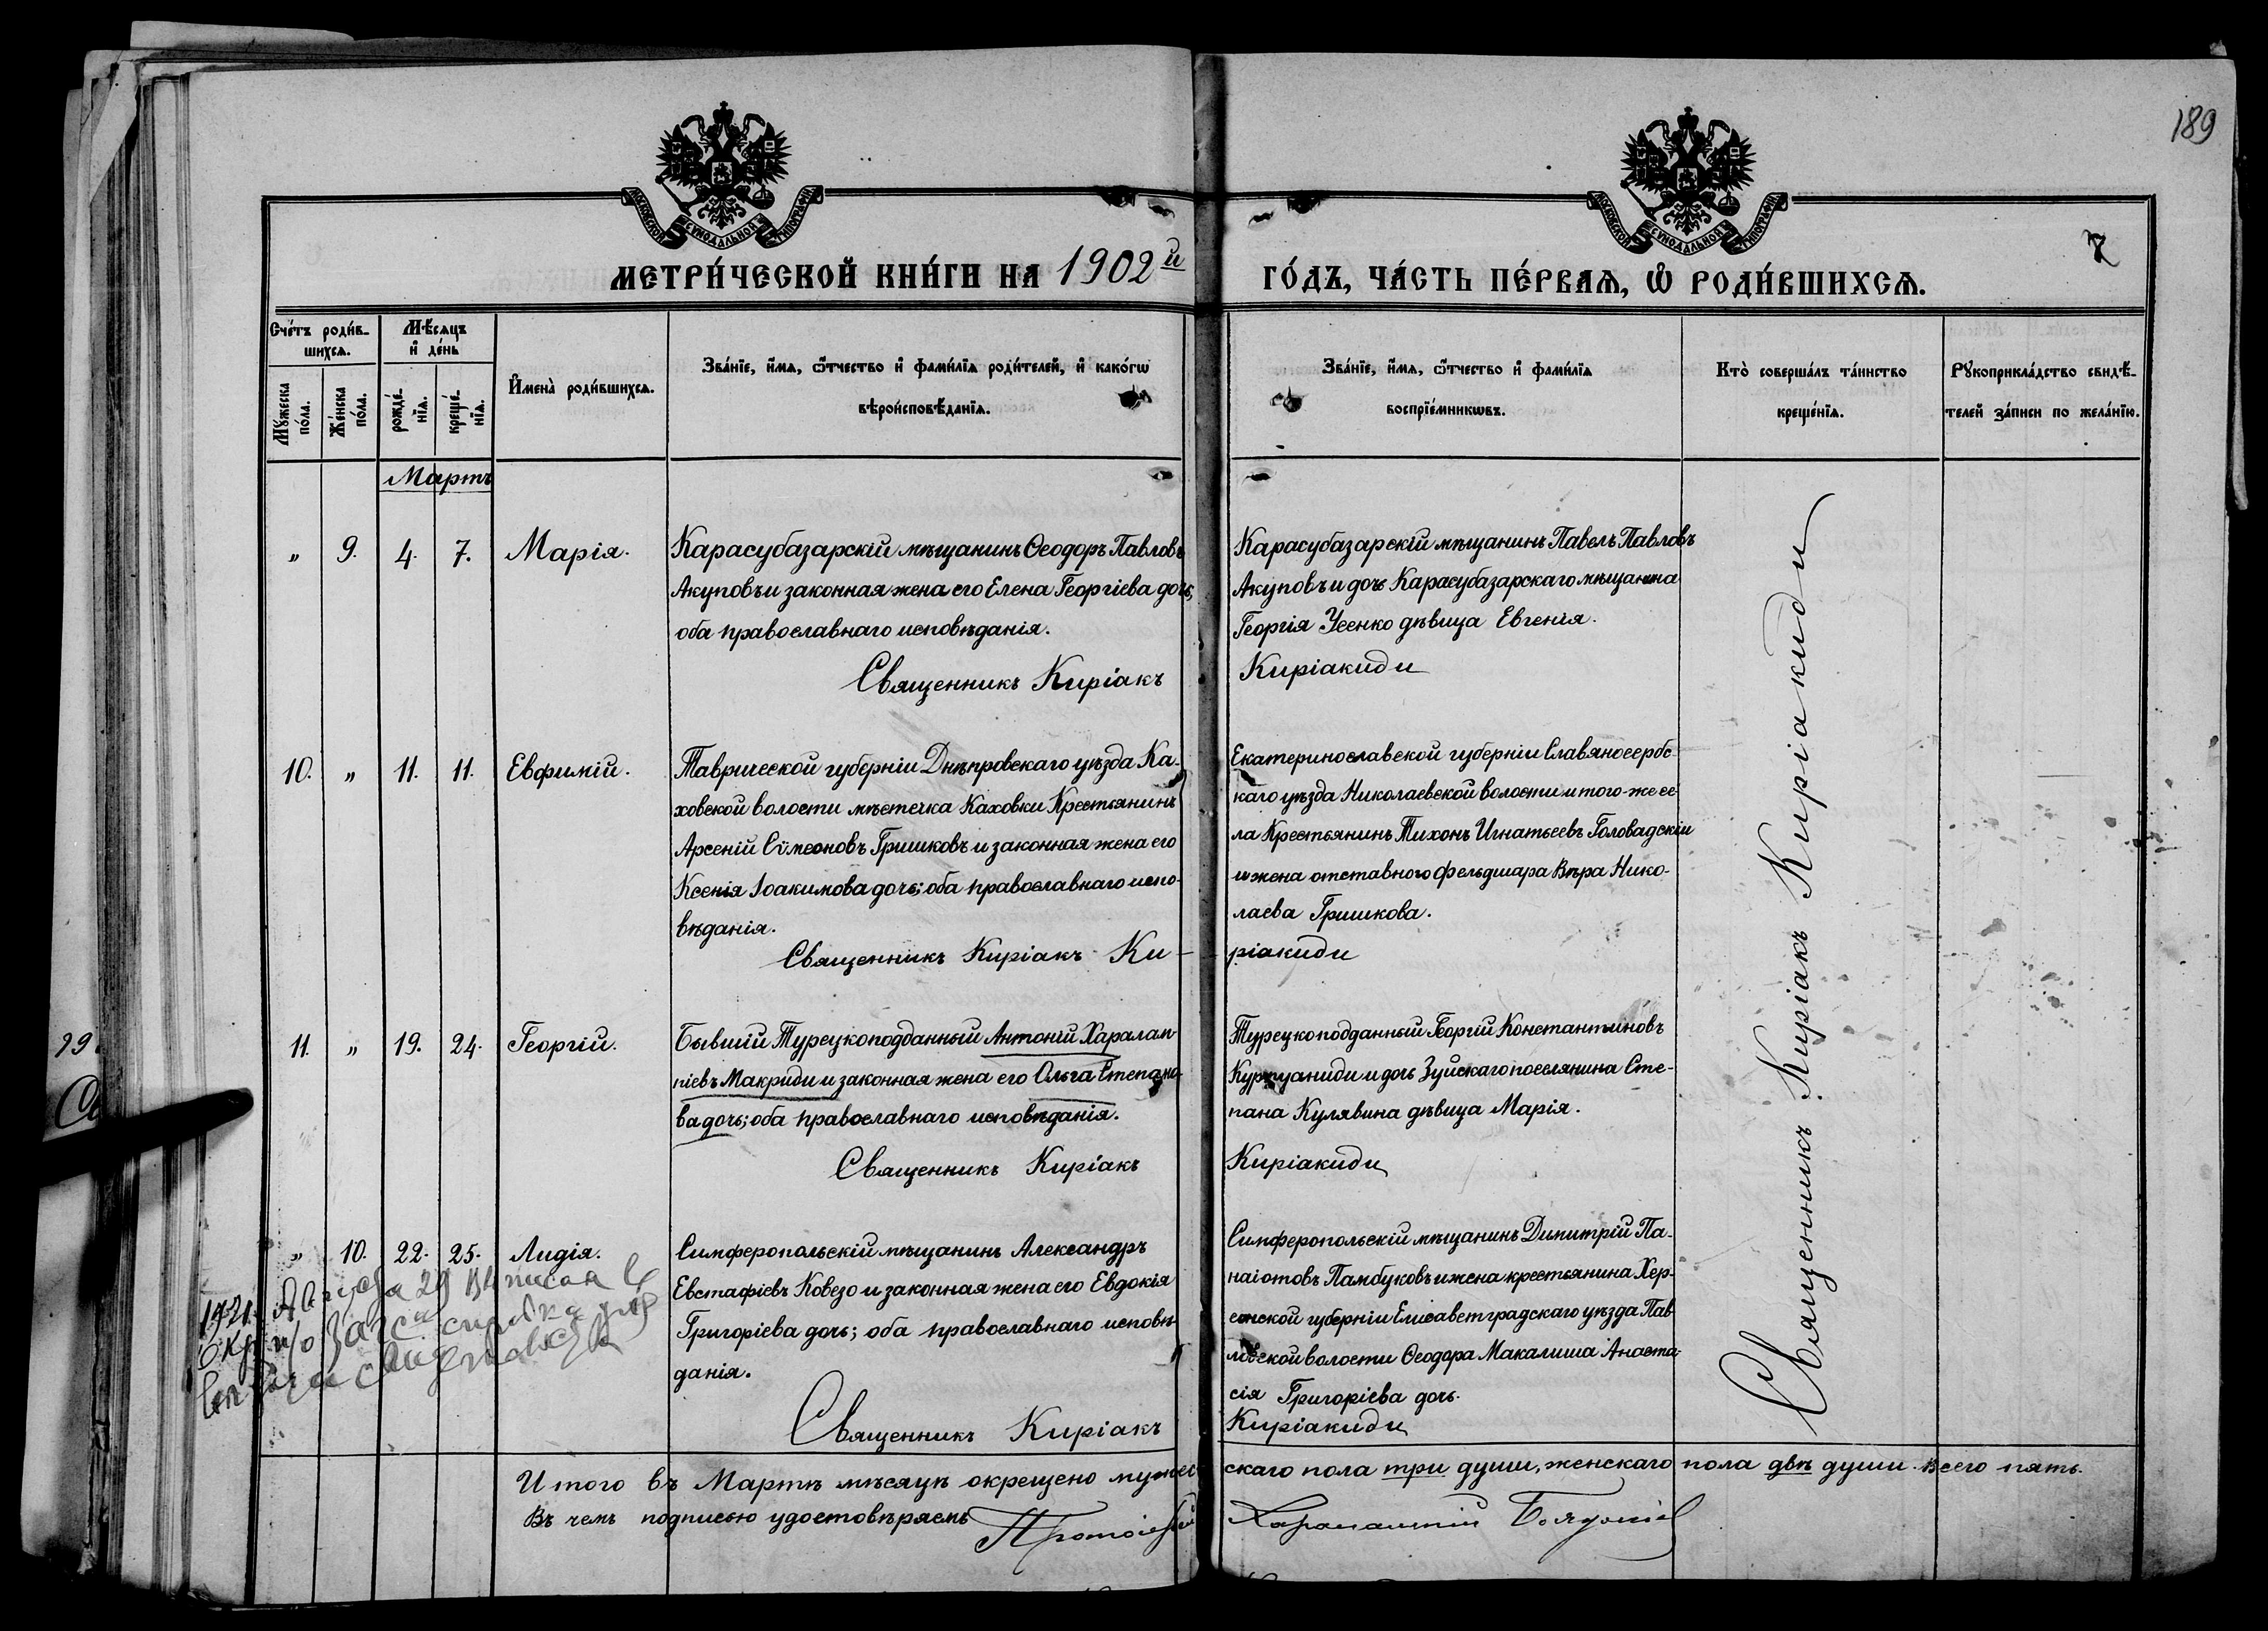 189
7
МОСКОВСКОЙ СУНОДАЛЬНОЙ ТИПОГРАФІИ
МОСКОВСКОЙ СУНОДАЛЬНОЙ ТИПОГРАФІИ
МЕТРИ́ЧЕСКОЙ КНИ́ГИ НА 1902й ГО́ДЪ, ЧА́СТЬ ПЕ́РВАѦ, Ѡ҆ РОДИ́ВШИХСѦ.
Сче́тъ роди́в-
шихсѧ.
Мꙋжеска
по́ла.
Же́нска
по́ла.
Мѣ́сѧцъ
и҆ де́нь
рожде́-
нїѧ.
креще́-
нїѧ.
И҆мена̀ роди́вшихсѧ.
Зва́нїе, и҆́мѧ, ѻ҆́тчество и҆ фами́лїѧ роди́телей, и҆ како́гѡ
вѣроисповѣ́данїѧ.
Зва́нїе, и҆́мѧ, ѻ҆́тчество и҆ фами́лїѧ
воспрїе́мникѡвъ.
Кто̀ соверша́лъ та́инство
креще́нїѧ.
Рꙋкоприкла́дство свидѣ́-
телей за́писи по жела́нїю.
Мартъ
" 9. 4. 7. Марія.
Карасубазарскій мѣщанинъ Ѳеодоръ Павловъ
Акуповъ и законная жена его Елена Георгіева дочь,
оба православнаго исповѣданія.
Священникъ Киріакъ
Карасубазарскій мѣщанинъ Павелъ Павловъ
Акуповъ и дочь Карасубазарскаго мѣщанина
Георгія Усенко дѣвица Евгенія.
Киріакиди
10. " 11. 11. Евфимій.
Таврической губерніи Днѣпровскаго уѣзда Ка-
ховской волости мѣстечка Каховки Крестьянинъ
Арсеній Сѵмеоновъ Гришковъ и законная жена его
Ксенія Іоакимова дочь; оба православнаго испо-
вѣданія.
Священникъ Киріакъ Ки-
Екатеринославской губерніи Славяносербс-
каго уѣзда Николаевской волости и того-же се-
ла Крестьянинъ Тихонъ Игнатьевъ Головадскій
и жена отставного фельдшара Вѣра Нико-
лаева Гришкова.
ріакиди
99
11. " 19. 24. Георгій.
Бывшій Турецкоподданный Антоній Харалам-
піевъ Макриди и законная жена его Ольга Степано-
ва дочь; оба православнаго исповѣданія.
Священникъ Киріакъ
Турецкоподданный Георгій Константиновъ
Курпуаниди и дочь Зуйскаго поселянина Сте-
пана Кулявина дѣвица Марія.
Киріакиди
" 10. 22. 25. Лидія.
Симферопольскій мѣщанинъ Александръ
Евстафіевъ Ковезо и законная жена его Евдокія
Григоріева дочь; оба православнаго исповѣ-
данія.
Священникъ Киріакъ
Симферопольскій мѣщанинъ Димитрій Па-
наіотовъ Памбуковъ и жена крестьянина Хер-
сонской губерніи Елисаветградскаго уѣзда Пав-
ловской волости Ѳеодора Макалиша Анаста-
сія Григоріева дочь.
Киріакиди
Священникъ Киріакъ Киріакиди
1921 Августа 29
Итого въ Мартѣ мѣсяцѣ окрещено мужескаго пола три души, женскаго пола двѣ души. Всего пять.
Въ чемъ подписью удостовѣряемъ
Протоіерей Харалампій